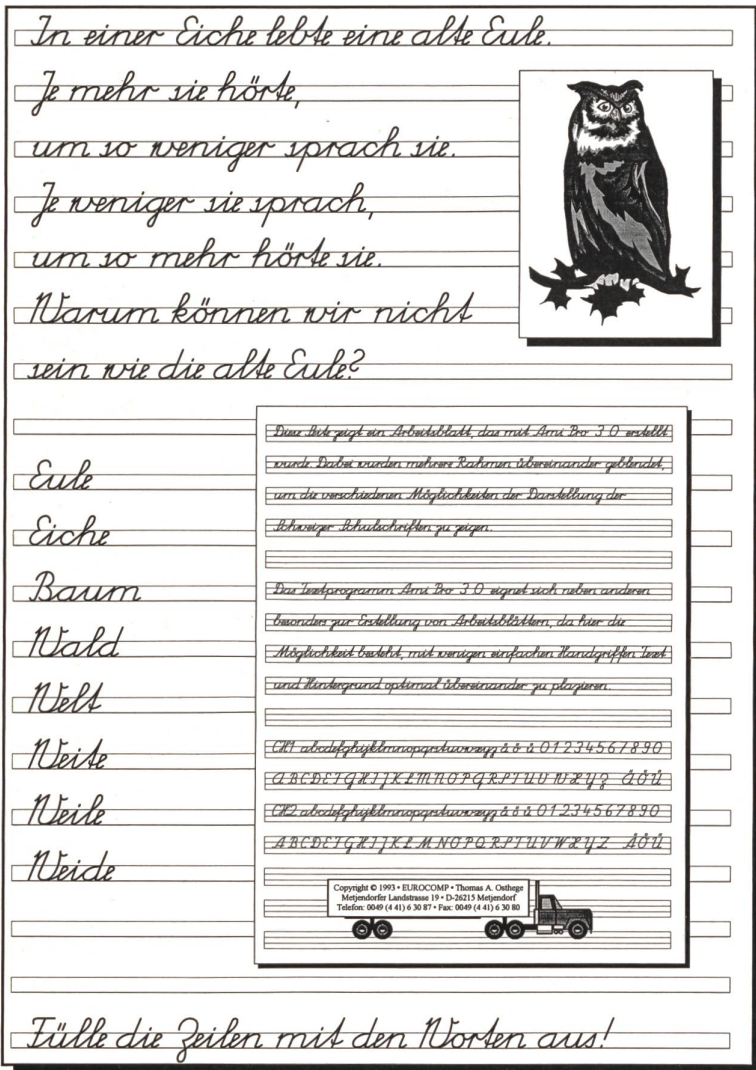 In einer Eiche lebte eine alte Eule.
Je mehr sie hörte,
um so weniger sprach sie.
Je weniger sie sprach,
um so mehr hörte sie.
Warum können wir nicht
sein wie die alte Eule?
Eule
Eiche
Baum
Wald
Welt
Weite
Weile
Weide
Diese Seite zeigt ein Arbeitsblatt, das mit Ami Pro 3.0 erstellt
wurde. Dabei wurden mehrere Rahmen übereinander geblendet,
um die verschiedenen Möglichkeiten der Darstellung der
Schweizer Schulschriften zu zeigen.
Das Textprogramm Ami Pro 3.0 eignet sich neben anderen
besonders zur Erstellung von Arbeitsblättern, da hier die
Möglichkeit besteht, mit wenigen einfachen Handgriffen Text
und Hintergrund optimal übereinander zu plazieren.
CH1 abcdefghijklmnopqrstuvwxyz ä ö ü 0 1 2 3 4 5 6 7 8 9 0
A B C D E F G H I J K L M N O P Q R S T U V W X Y Z Ä Ö Ü
CH2 abcdefghijklmnopqrstuvwxyz ä ö ü 0 1 2 3 4 5 6 7 8 9 0
A B C D E F G H I J K L M N O P Q R S T U V W X Y Z Ä Ö Ü
Copyright © 1993 • EUROCOMP • Thomas A. Osthege
Metjendorfer Landstrasse 19 • D-26215 Metjendorf
Telefon: 0049 (4 41) 6 30 87 • Fax: 0049 (4 41) 6 30 80
Fülle die Zeilen mit den Worten aus!